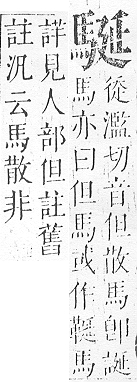 駳
從濫切音但散馬卽誕
馬亦曰但馬或作鞓馬
詳見人部但註舊
註汎云馬散非